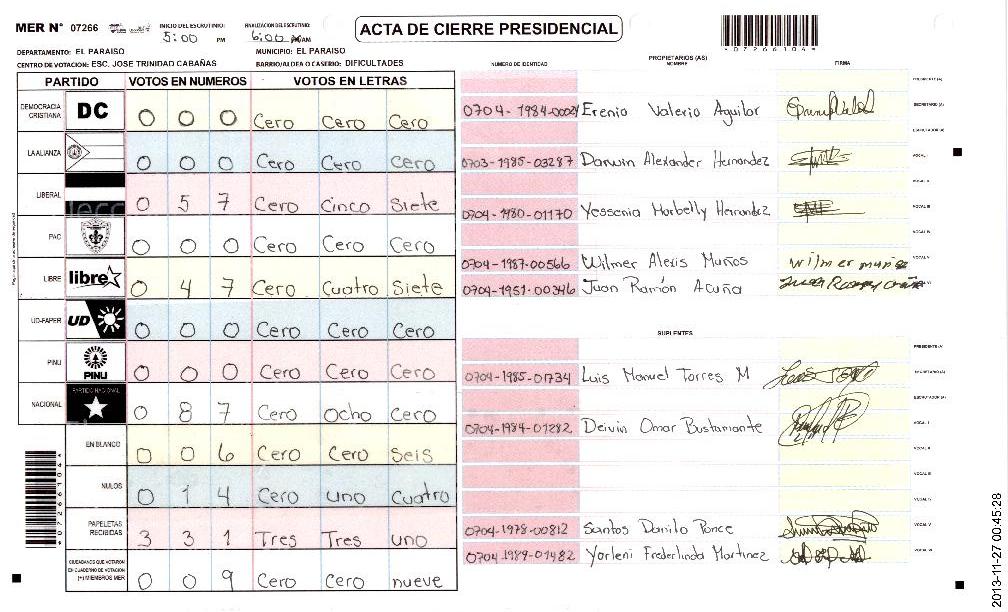 MER N° 07266 INICIO DEL ESCRUTINIO: 5:00 PM FINALIZACION DEL ESCRUTINIO: 6:00 AM
ACTA DE CIERRE PRESIDENCIAL
*07266104*
DEPARTAMENTO: EL PARAISO MUNICIPIO: EL PARAISO
CENTRO DE VOTACION: ESC. JOSE TRINIDAD CABAÑAS BARRIO/ALDEA O CASERIO: DIFICULTADES
PARTIDO VOTOS EN NUMEROS VOTOS EN LETRAS
DEMOCRACIA CRISTIANA DC 0 0 0 Cero Cero Cero
LA ALIANZA 0 0 0 Cero Cero Cero
LIBERAL 0 5 7 Cero Cinco Siete
PAC 0 0 0 Cero Cero Cero
LIBRE libre 0 4 7 Cero Cuatro Siete
UD-FAPER UD 0 0 0 Cero Cero Cero
PINU PINU 0 0 0 Cero Cero Cero
NACIONAL PARTIDO NACIONAL 0 8 7 Cero Ocho cero
EN BLANCO 0 0 6 Cero Cero Seis
NULOS 0 1 4 Cero uno Cuatro
PAPELETAS RECIBIDAS 3 3 1 Tres Tres uno
CIUDADANOS QUE VOTARON EN CUADERNO DE VOTACION (+) MIEMBROS MER 0 0 9 Cero Cero nueve
*07266104*
PROPIETARIOS (AS)
NUMERO DE IDENTIDAD NOMBRE FIRMA
PRESIDENTE (A)
0704-1984-00024 Erenio Valerio Aguilar SECRETARIO (A)
ESCRUTADOR (A)
0703-1985-03287 Darwin Alexander Hernandez VOCAL I
VOCAL II
0704-1980-01170 Yessenia Marbelly Hernandez VOCAL III
VOCAL IV
0704-1987-00566 Wilmer Alexis Muños wilmer muños VOCAL V
0704-1951-00346 Juan Ramón Acuña VOCAL VI
SUPLENTES
PRESIDENTE (A)
0704-1985-01734 Luis Manuel Torres M SECRETARIO (A)
ESCRUTADOR (A)
0704-1984-01282 Deivin Omar Bustamante VOCAL I
VOCAL II
VOCAL III
VOCAL IV
0704-1978-00812 Santos Danilo Ponce VOCAL V
0704-1989-01482 Yorleni Frederlinda Martinez VOCAL VI
2013-11-27 00:45:28